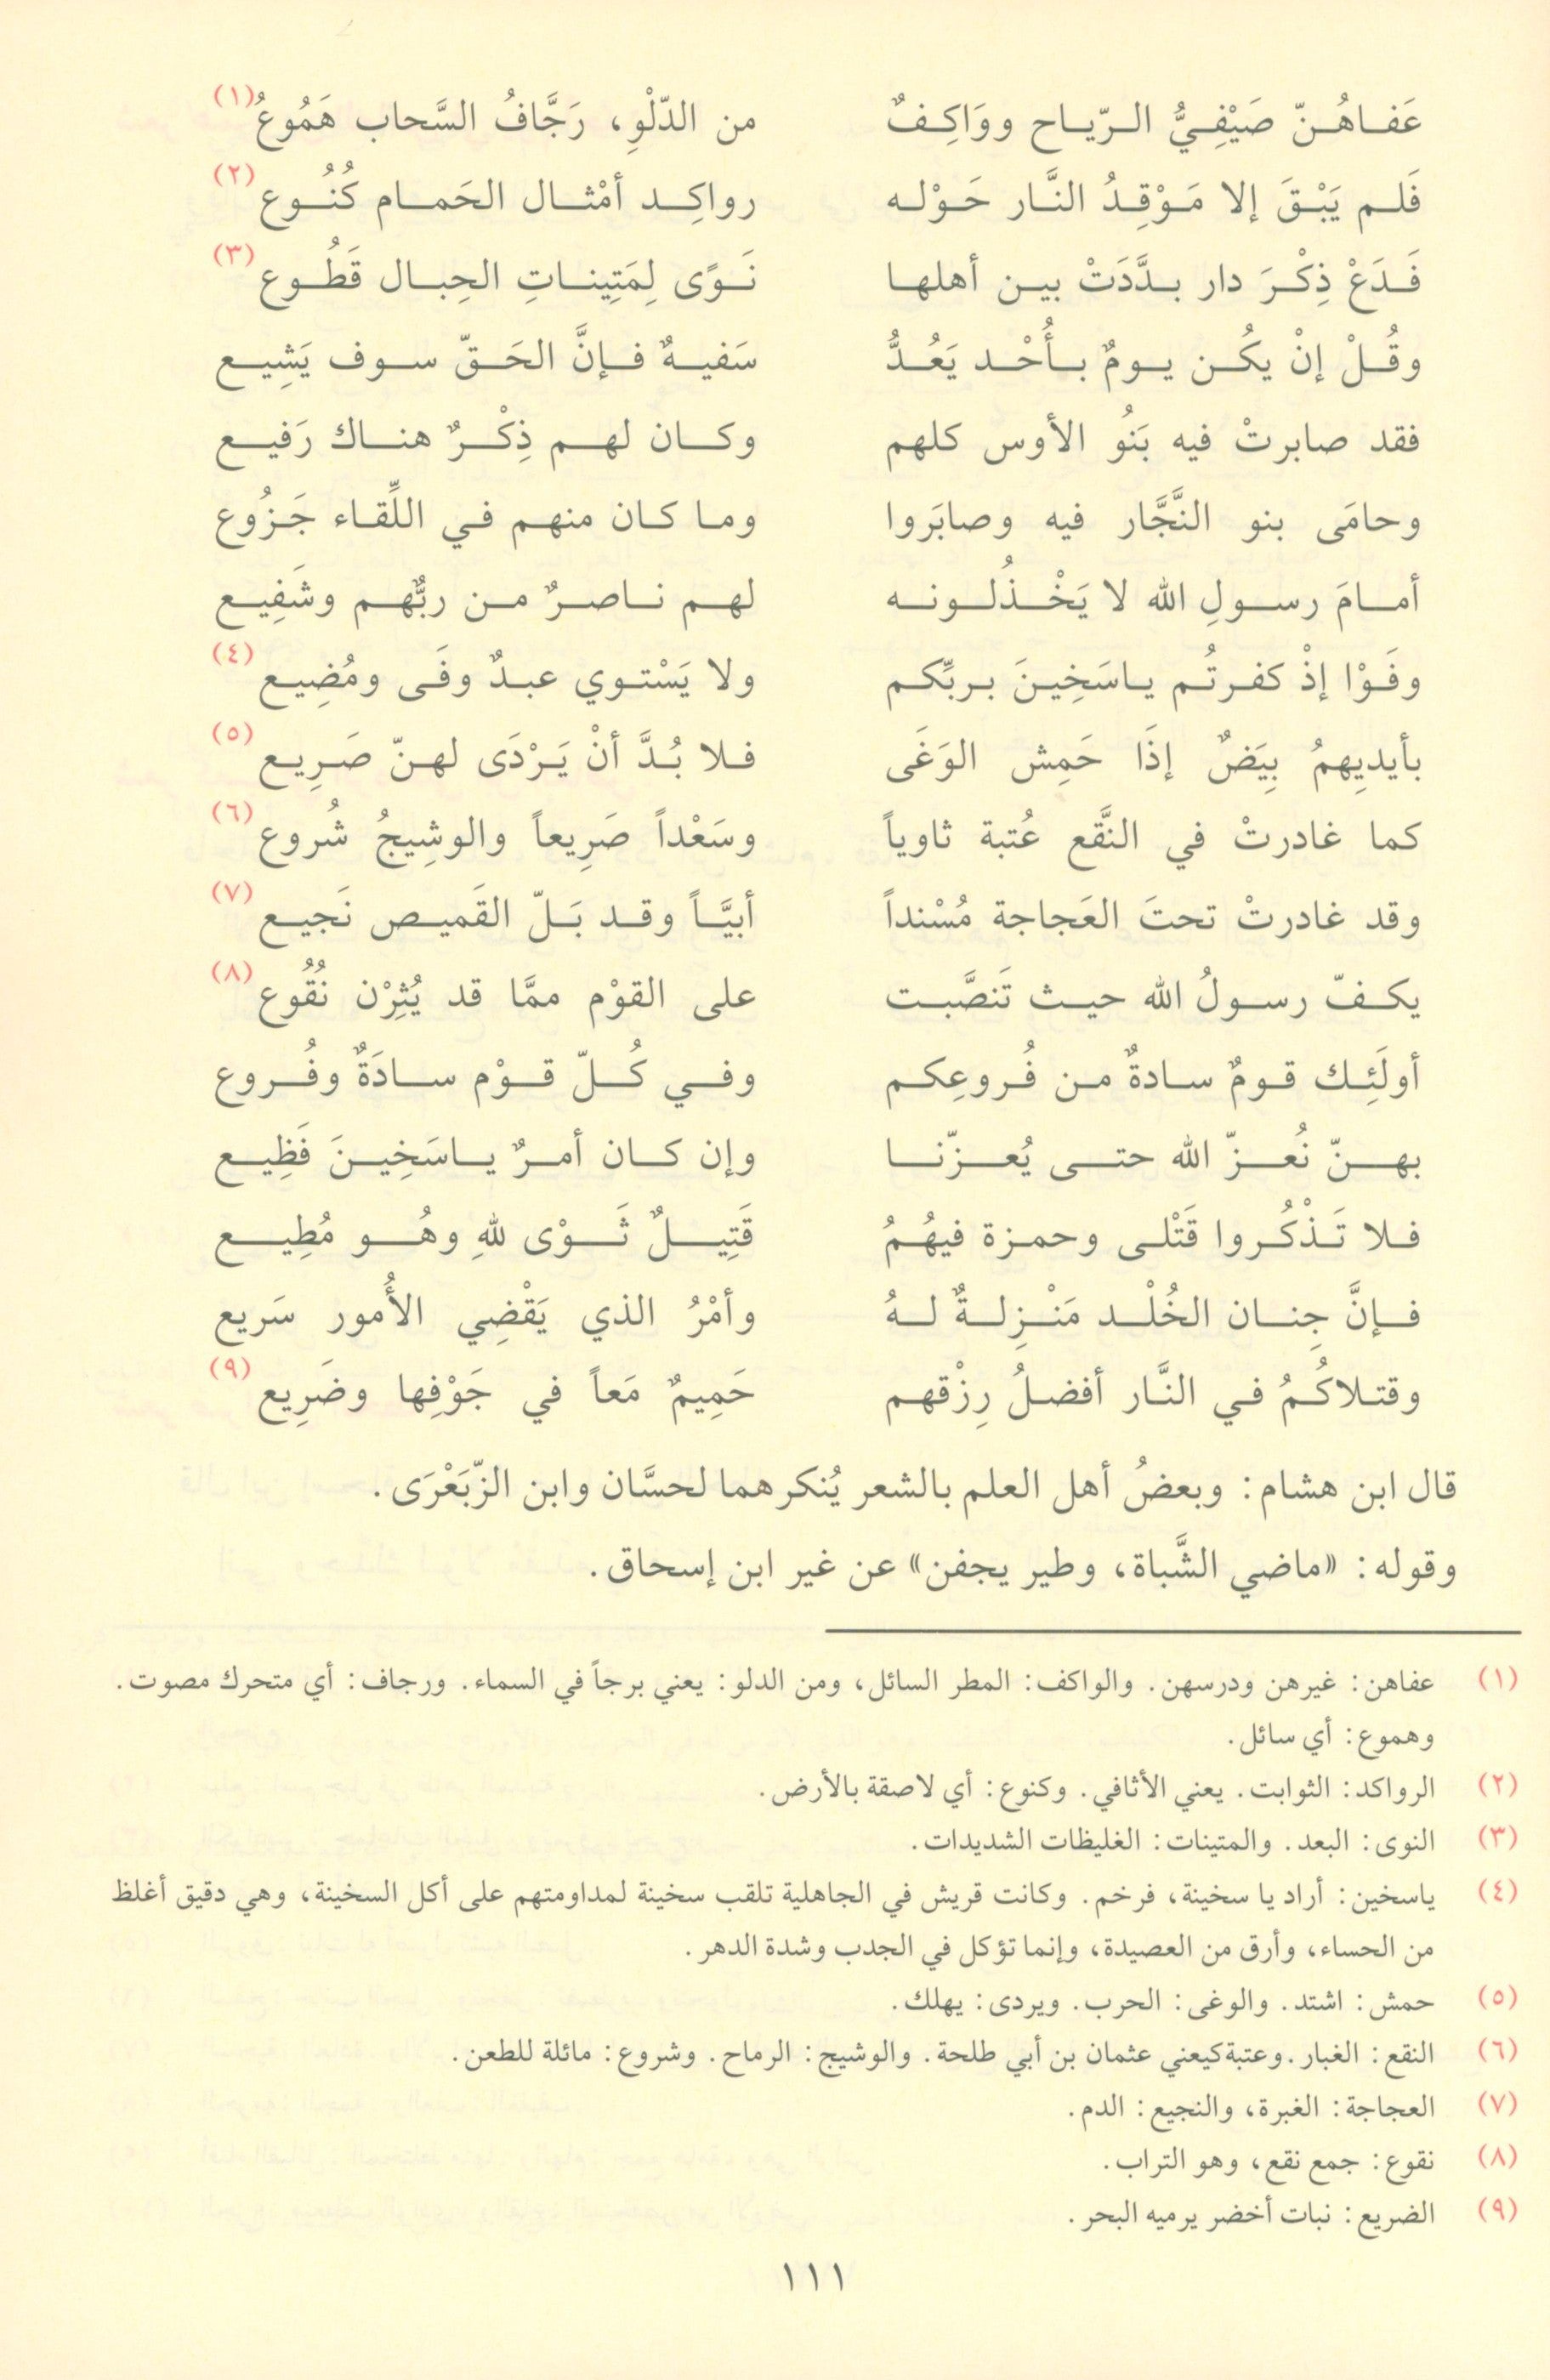 عَفاهُنّ صَيْفِيُّ الرّياح ووَاكِفٌ من الدّلْوِ، رَجَّافُ السَّحاب هَمُوعُ (١)
فَلم يَبْقَ إلا مَوْقِدُ النَّار حَوْله رواكِد أمْثال الحَمام كُنُوع (٢)
فَدَعْ ذِكْرَ دار بدَّدَتْ بين أهلها نَوًى لِمَتِيناتِ الحِبال قَطُوع (٣)
وقُلْ إنْ يكُن يومٌ بأُحْد يَعُدُّ سَفيهٌ فإنَّ الحَقّ سوف يَشِيع
فقد صابرتْ فيه بَنُو الأوس كلهم وكان لهم ذِكْرٌ هناك رَفيع
وحامَى بنو النَّجَّار فيه وصابَروا وما كان منهم في اللِّقاء جَزُوع
أمامَ رسولِ الله لا يَخْذُلونه لهم ناصرٌ من ربٌّهم وشَفِيع
وفَوْا إذْ كفرتُم ياسَخِينَ بربِّكم ولا يَسْتوي عبدٌ وفَى ومُضِيع (٤)
بأيديِهمُ بِيَضٌ إذَا حَمِش الوَغَى فلا بُدَّ أنْ يَرْدَى لهنّ صَرِيع (٥)
كما غادرتْ في النَّقع عُتبة ثاوياً وسَعْداً صَرِيعاً والوشِيجُ شُروع (٦)
وقد غادرتْ تحتَ العَجاجة مُسْنداً أبيَّاً وقد بَلّ القَميص نَجيع (٧)
يكفّ رسولُ الله حيث تَنصَّبت على القوْم ممَّا قد يُثِرْن نُقُوع (٨)
أولَئِك قومٌ سادةٌ من فُروعِكم وفي كُلّ قوْم سادَةٌ وفُروع
بهنّ نُعزّ الله حتى يُعزّنا وإن كان أمرٌ ياسَخِينَ فَظِيع
فلا تَذْكُروا قَتْلى وحمزة فيهُمُ قَتِيلٌ ثَوْى للهِ وهُو مُطِيع
فإنَّ جِنان الخُلْد مَنْزِلةٌ لهُ وأمْرُ الذي يَقْضِي الأُمور سَريع
وقتلاكُمُ في النَّار أفضلُ رِزْقهم حَمِيمٌ مَعاً في جَوْفِها وضَرِيع (٩)
قال ابن هشام: وبعضُ أهل العلم بالشعر يُنكرهما لحسَّان وابن الزّبَعْرَى.
وقوله: «ماضي الشَّباة، وطير يجفن» عن غير ابن إسحاق.
(١) عفاهن: غيرهن ودرسهن. والواكف: المطر السائل، ومن الدلو: يعني برجاً في السماء. ورجاف: أي متحرك مصوت.
وهموع: أي سائل.
(٢) الرواكد: الثوابت. يعني الأثافي. وكنوع: أي لاصقة بالأرض.
(٣) النوى: البعد. والمتينات: الغليظات الشديدات.
(٤) ياسخين: أراد يا سخينة، فرخم. وكانت قريش في الجاهلية تلقب سخينة لمداومتهم على أكل السخينة، وهي دقيق أغلظ
من الحساء، وأرق من العصيدة، وإنما تؤكل في الجدب وشدة الدهر.
(٥) حمش: اشتد. والوغى: الحرب. ويردى: يهلك.
(٦) النقع: الغبار. وعتبة كيعني عثمان بن أبي طلحة. والوشيج: الرماح. وشروع: مائلة للطعن.
(٧) العجاجة: الغبرة، والنجيع: الدم.
(٨) نقوع: جمع نقع، وهو التراب.
(٩) الضريع: نبات أخضر يرميه البحر.
١١١